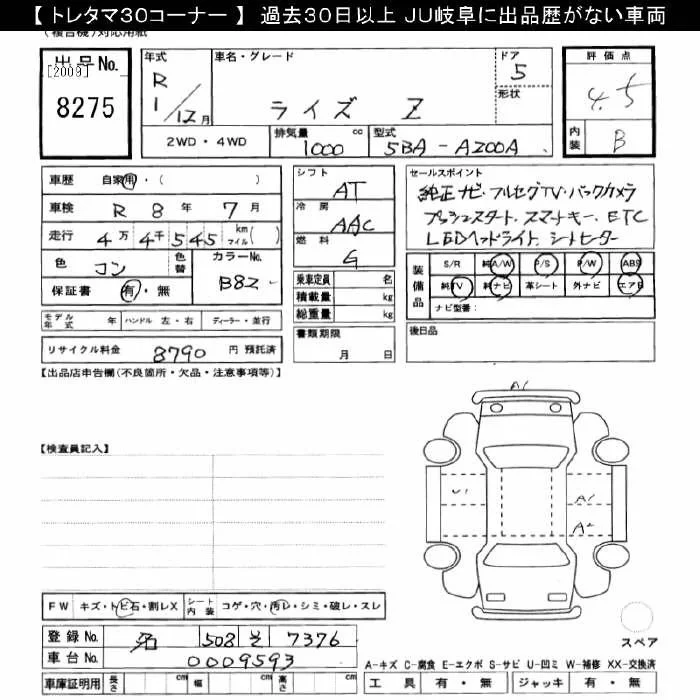 【 トレタマ30コーナー 】 過去30日以上 JU岐阜に出品歴がない車両
(複合機)対応用紙
出品No.
[2009]
8275
年式
R 1/12月
車名・グレード
ライズ Z
ドア
5
形状
評価点
4.5
内装
B
2WD・4WD
排気量 1000 cc
型式 5BA-A200A
車歴 自家用・( )
車検 R 8年 7月
走行 4万4千545 km マイル( )
色 コン
色替
カラーNo. B82
保証書 有・無
シフト AT
冷房 AAC
燃料 G
乗車定員 名
積載量 kg
総重量 kg
セールスポイント
純正ナビ・フルセグTV・バックカメラ
プッシュスタート・スマートキー・ETC
LEDヘッドライト・シートヒーター
装備品
S/R 純A/W P/S P/W ABS
純TV 純ナビ 革シート 外ナビ エアB
ナビ型番:
モデル年式 年 ハンドル 左・右 ディーラー・並行
リサイクル料金 8790 円 預託済
書類期限
月 日
後日品
【出品店申告欄(不良箇所・欠品・注意事項等)】
A1
【検査員記入】
U1
A1
A2
FW キズ・トビ石・割レX
シート内装 コゲ・穴・汚レ・シミ・破レ・スレ
登録No. 名 508 そ 7376
車台No. 0009593
車庫証明用 長さ cm 幅 cm 高さ cm
スペア
A-キズ C-腐食 E-エクボ S-サビ U-凹ミ W-補修 XX-交換済
工具 有・無 ジャッキ 有・無